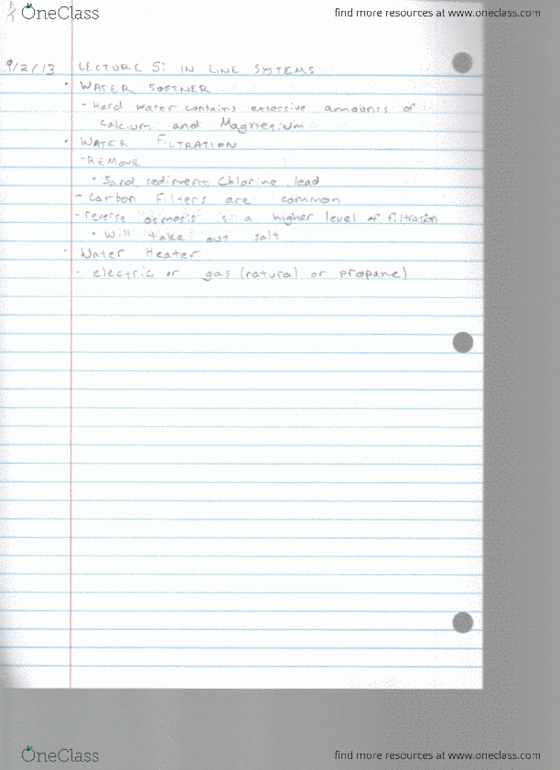 OneClass
find more resources at www.oneclass.com
9/2/13 LECTURE 5: IN LINE SYSTEMS
• WATER SOFTNER
- Hard water contains excessive amounts of
calcium and Magnesium
• WATER FILTRATION
- REMOVE
• Sand, sediment, Chlorine, lead
- Carbon Filters are common
- reverse osmosis is a higher level of filtration
• Will take out salt
• Water Heater
- electric or gas (natural or propane)
OneClass
find more resources at www.oneclass.com